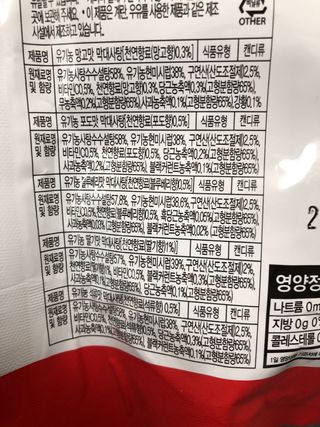 곳에 보관해 주세요. • 이 제품은 계란, 우유를 사용한 제품과 같은 제조
시설에서 제조하고 있습니다.
OTHER
제품명 유기농 망고맛 막대사탕[천연향료(망고향)0.3%] 식품유형 캔디류
원재료명 및 함량 유기농사탕수수설탕58%, 유기농현미시럽38%, 구연산(산도조절제)2.5%,
비타민C0.5%, 천연향료(망고향)0.3%, 당근농축액0.3%(고형분함량65%),
무농축액0.2%(고형분함량65%), 사과농축액0.1%(고형분함량65%), 강황0.1%
제품명 유기농 포도맛 막대사탕[천연향료(포도향)0.5%] 식품유형 캔디류
원재료명 및 함량 유기농사탕수수설탕58%, 유기농현미시럽38%, 구연산(산도조절제)2.5%,
비타민C0.5%, 천연향료(포도향)0.5%, 당근농축액0.2%(고형분함량65%),
사과농축액0.2%(고형분함량65%), 블랙커런트농축액0.1%(고형분함량65%)
제품명 유기농 블루베리맛 막대사탕[천연향료(블루베리향)0.5%] 식품유형 캔디류
원재료명 및 함량 유기농사탕수수설탕57.8%, 유기농현미시럽38%, 구연산(산도조절제)2.5%,
비타민C0.5%, 천연향료(블루베리향)0.5%, 흑당근농축액0.05%(고형분함량65%)
사과농축액 (고형분함량65%), 블랙커런트농축액0.02%(고형분함량65%)
제품명 유기농 딸기맛 막대사탕[천연향료(딸기향)1%] 식품유형 캔디류
원재료명 및 함량 유기농사탕수수설탕57%, 유기농현미시럽39%, 구연산(산도조절제)2%,
천연향료(딸기향)1%, 비타민C0.5%, 블랙커런트농축액0.3%(고형분함량65%),
사과농축액0.1%(고형분함량65%), 당근농축액0.1%(고형분함량65%)
제품명 유기농 석류맛 막대사탕[천연향료(석류향) 0.5%] 식품유형 캔디류
원재료명 및 함량 유기농사탕수수설탕58%, 유기농현미시럽38%, 구연산(산도조절제)2.5%,
비타민C0.5%, 천연향료(석류향)0.5%, 당근농축액0.3%(고형분함량65%),
사과농축액0.1%(고형분함량65%), 블랙커런트농축액0.1%(고형분함량65%)
2
영양정
나트륨 0m
지방 0g 0%
콜레스테롤 0